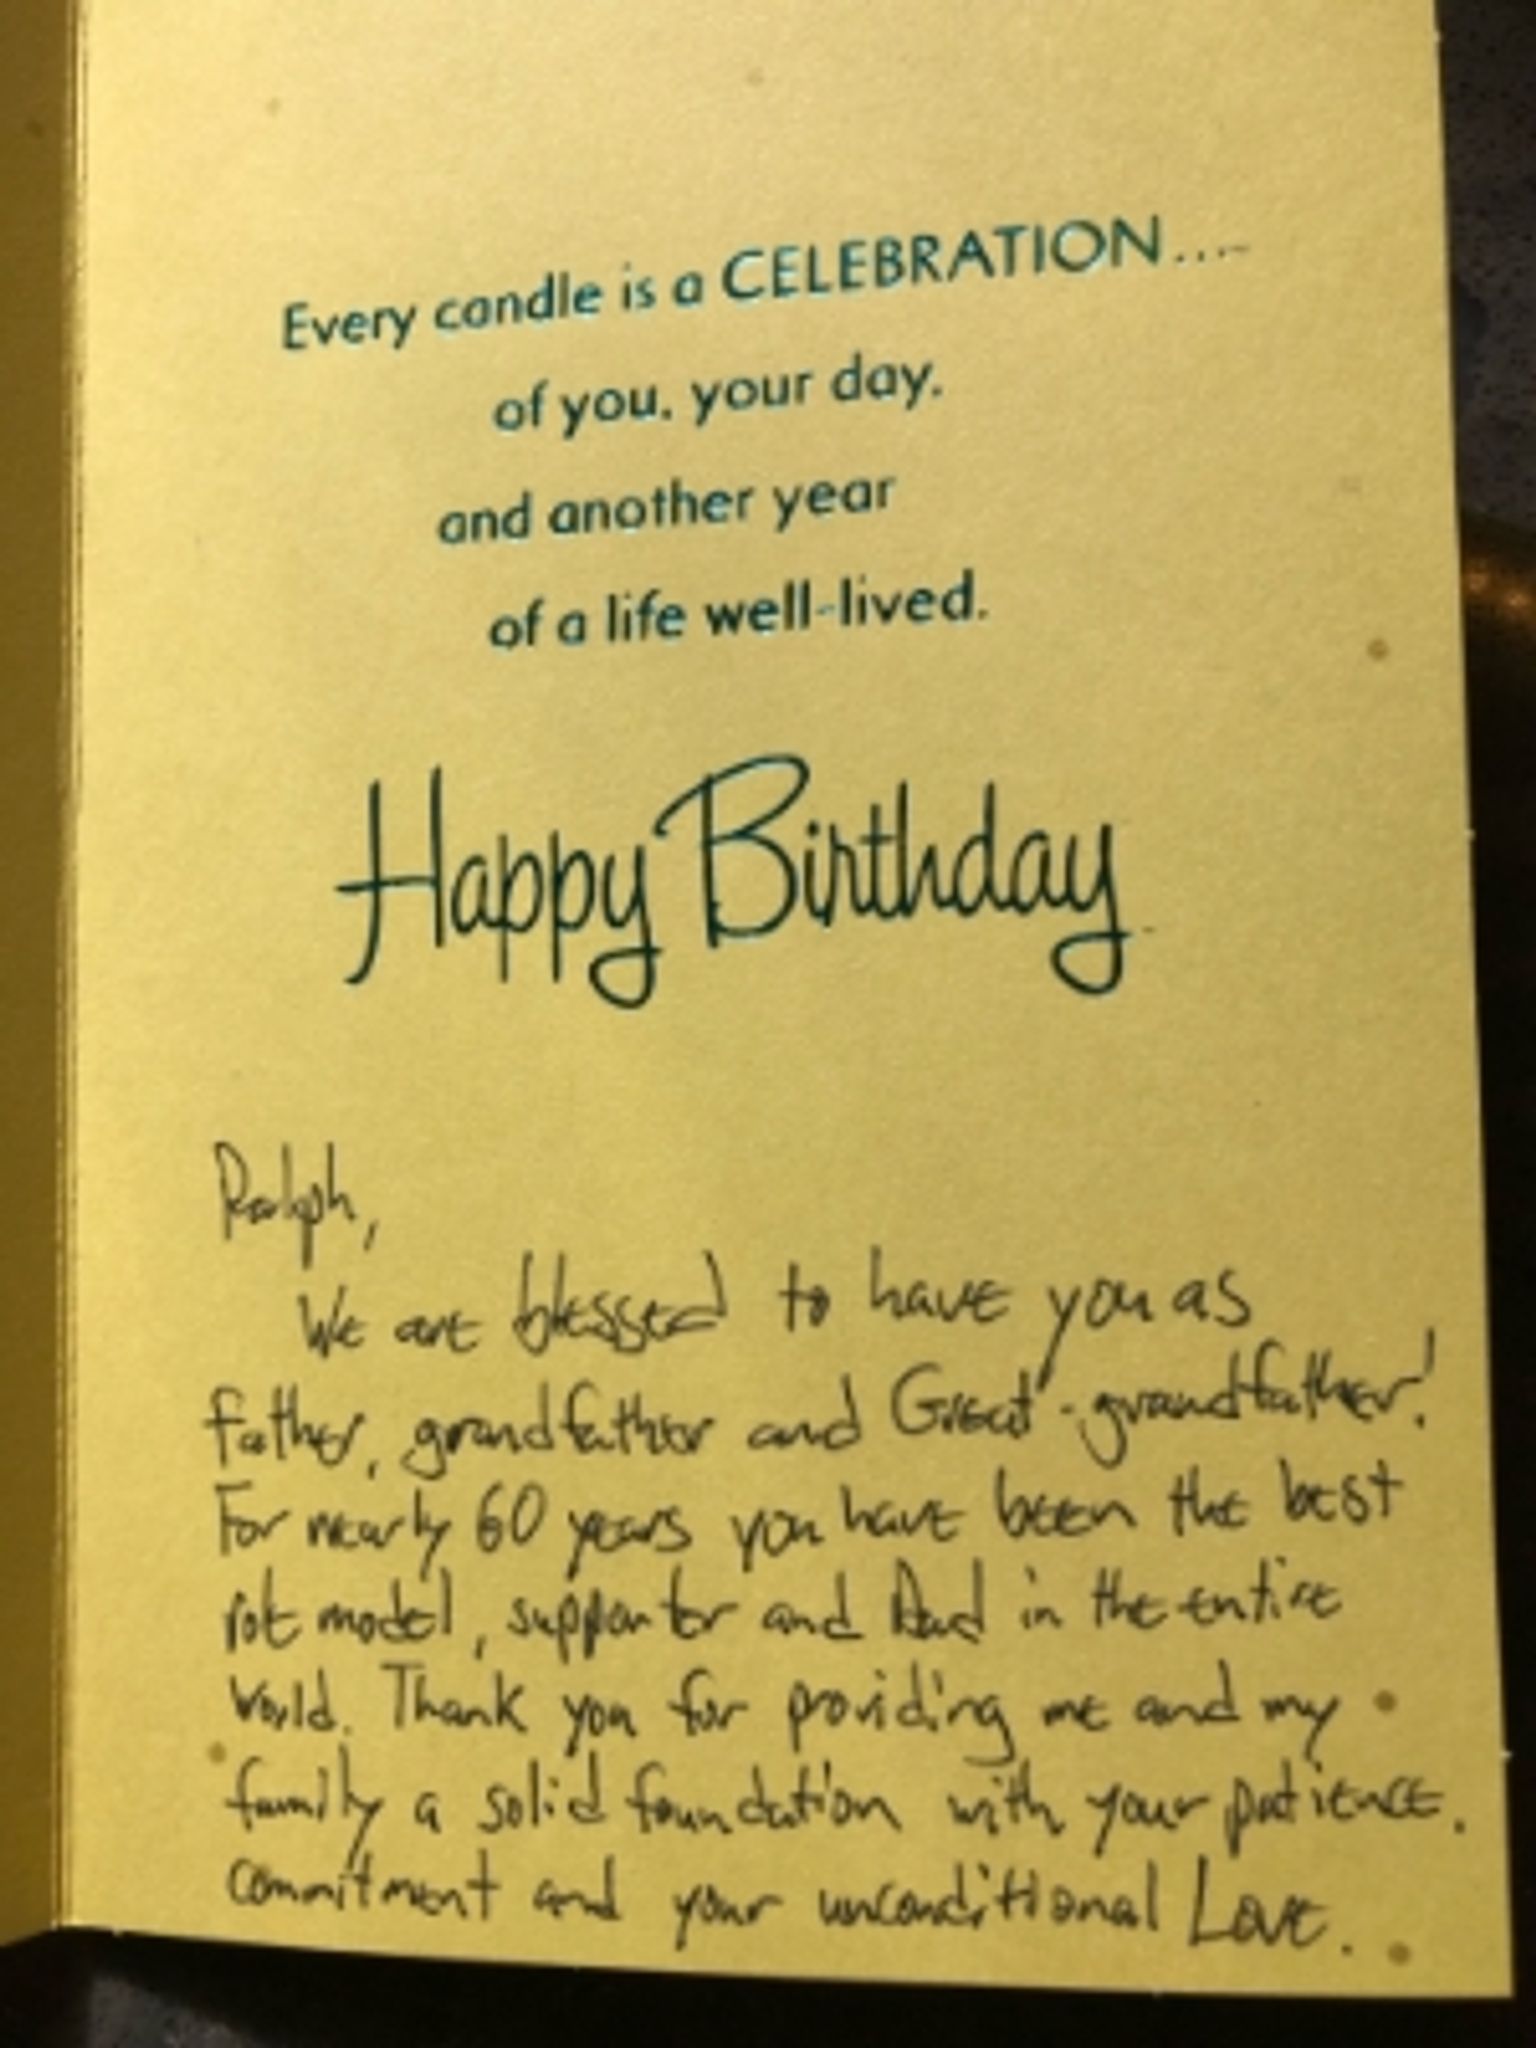 Every candle is a CELEBRATION....
of you, your day,
and another year
of a life well-lived.
Happy Birthday
Ralph,
We are blessed to have you as
father, grandfather and Great-grandfather!
For nearly 60 years you have been the best
role model, supporter and Dad in the entire
World. Thank you for providing me and my
family a solid foundation with your patience,
commitment and your unconditional Love.